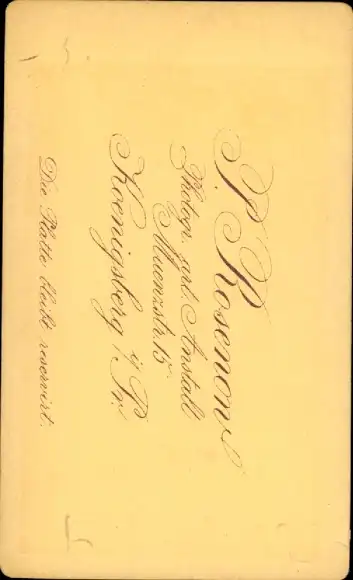 P. Rosenow
Photogr. art. Anstalt
Muenzstr. 15
Koenigsberg i/Pr.
Die Platte bleibt reservirt.